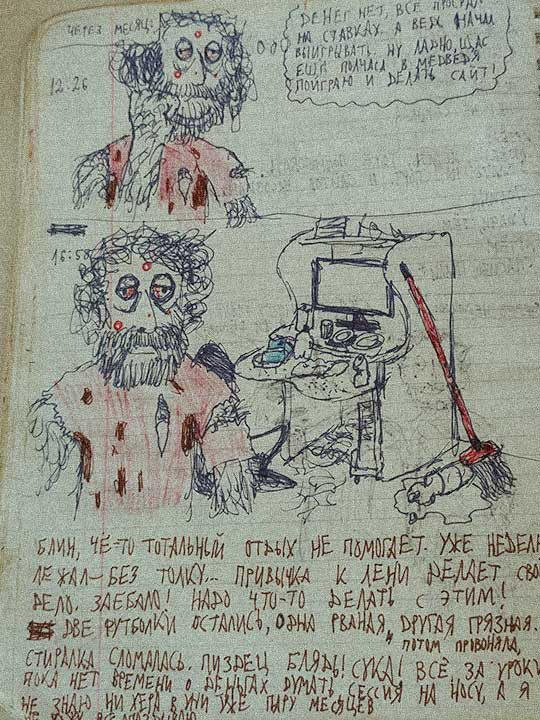 ЧЕРЕЗ МЕСЯЦ:
ДЕНЕГ НЕТ, ВСЕ
НА СТАВКАХ. А ВЕДЬ НАЧАЛ
ВЫИГРЫВАТЬ. НУ ЛАДНО, ЩАС
ЕЩЁ ПОЛЧАСА В МЕДВЕДЯ
ПОИГРАЮ И ДЕЛАТЬ САЙТ!
12:26
16:58
БЛИН, ЧЁ-ТО ТОТАЛЬНЫЙ ОТДЫХ НЕ ПОМОГАЕТ. УЖЕ НЕДЕЛЮ
ЛЕЖАЛ-БЕЗ ТОЛКУ... ПРИВЫЧКА К ЛЕНИ ДЕЛАЕТ СВОЁ
ДЕЛО. ЗАЕБАЛО! НАДО ЧТО-ТО ДЕЛАТЬ С ЭТИМ!
ДВЕ ФУТБОЛКИ ОСТАЛИСЬ, ОДНА РВАНАЯ, ДРУГАЯ ГРЯЗНАЯ.
ПОТОМ ПРОВОНЯЛА,
СТИРАЛКА СЛОМАЛАСЬ. ПИЗДЕЦ БЛЯДЬ! СУКА! ВСЁ, ЗА УРОКИ
ПОКА НЕТ ВРЕМЕНИ О ДЕНЬГАХ ДУМАТЬ, СЕССИЯ НА НОСУ, А Я
НЕ ЗНАЮ НИ ХЕРА В УНИ УЖЕ ПАРУ МЕСЯЦЕВ